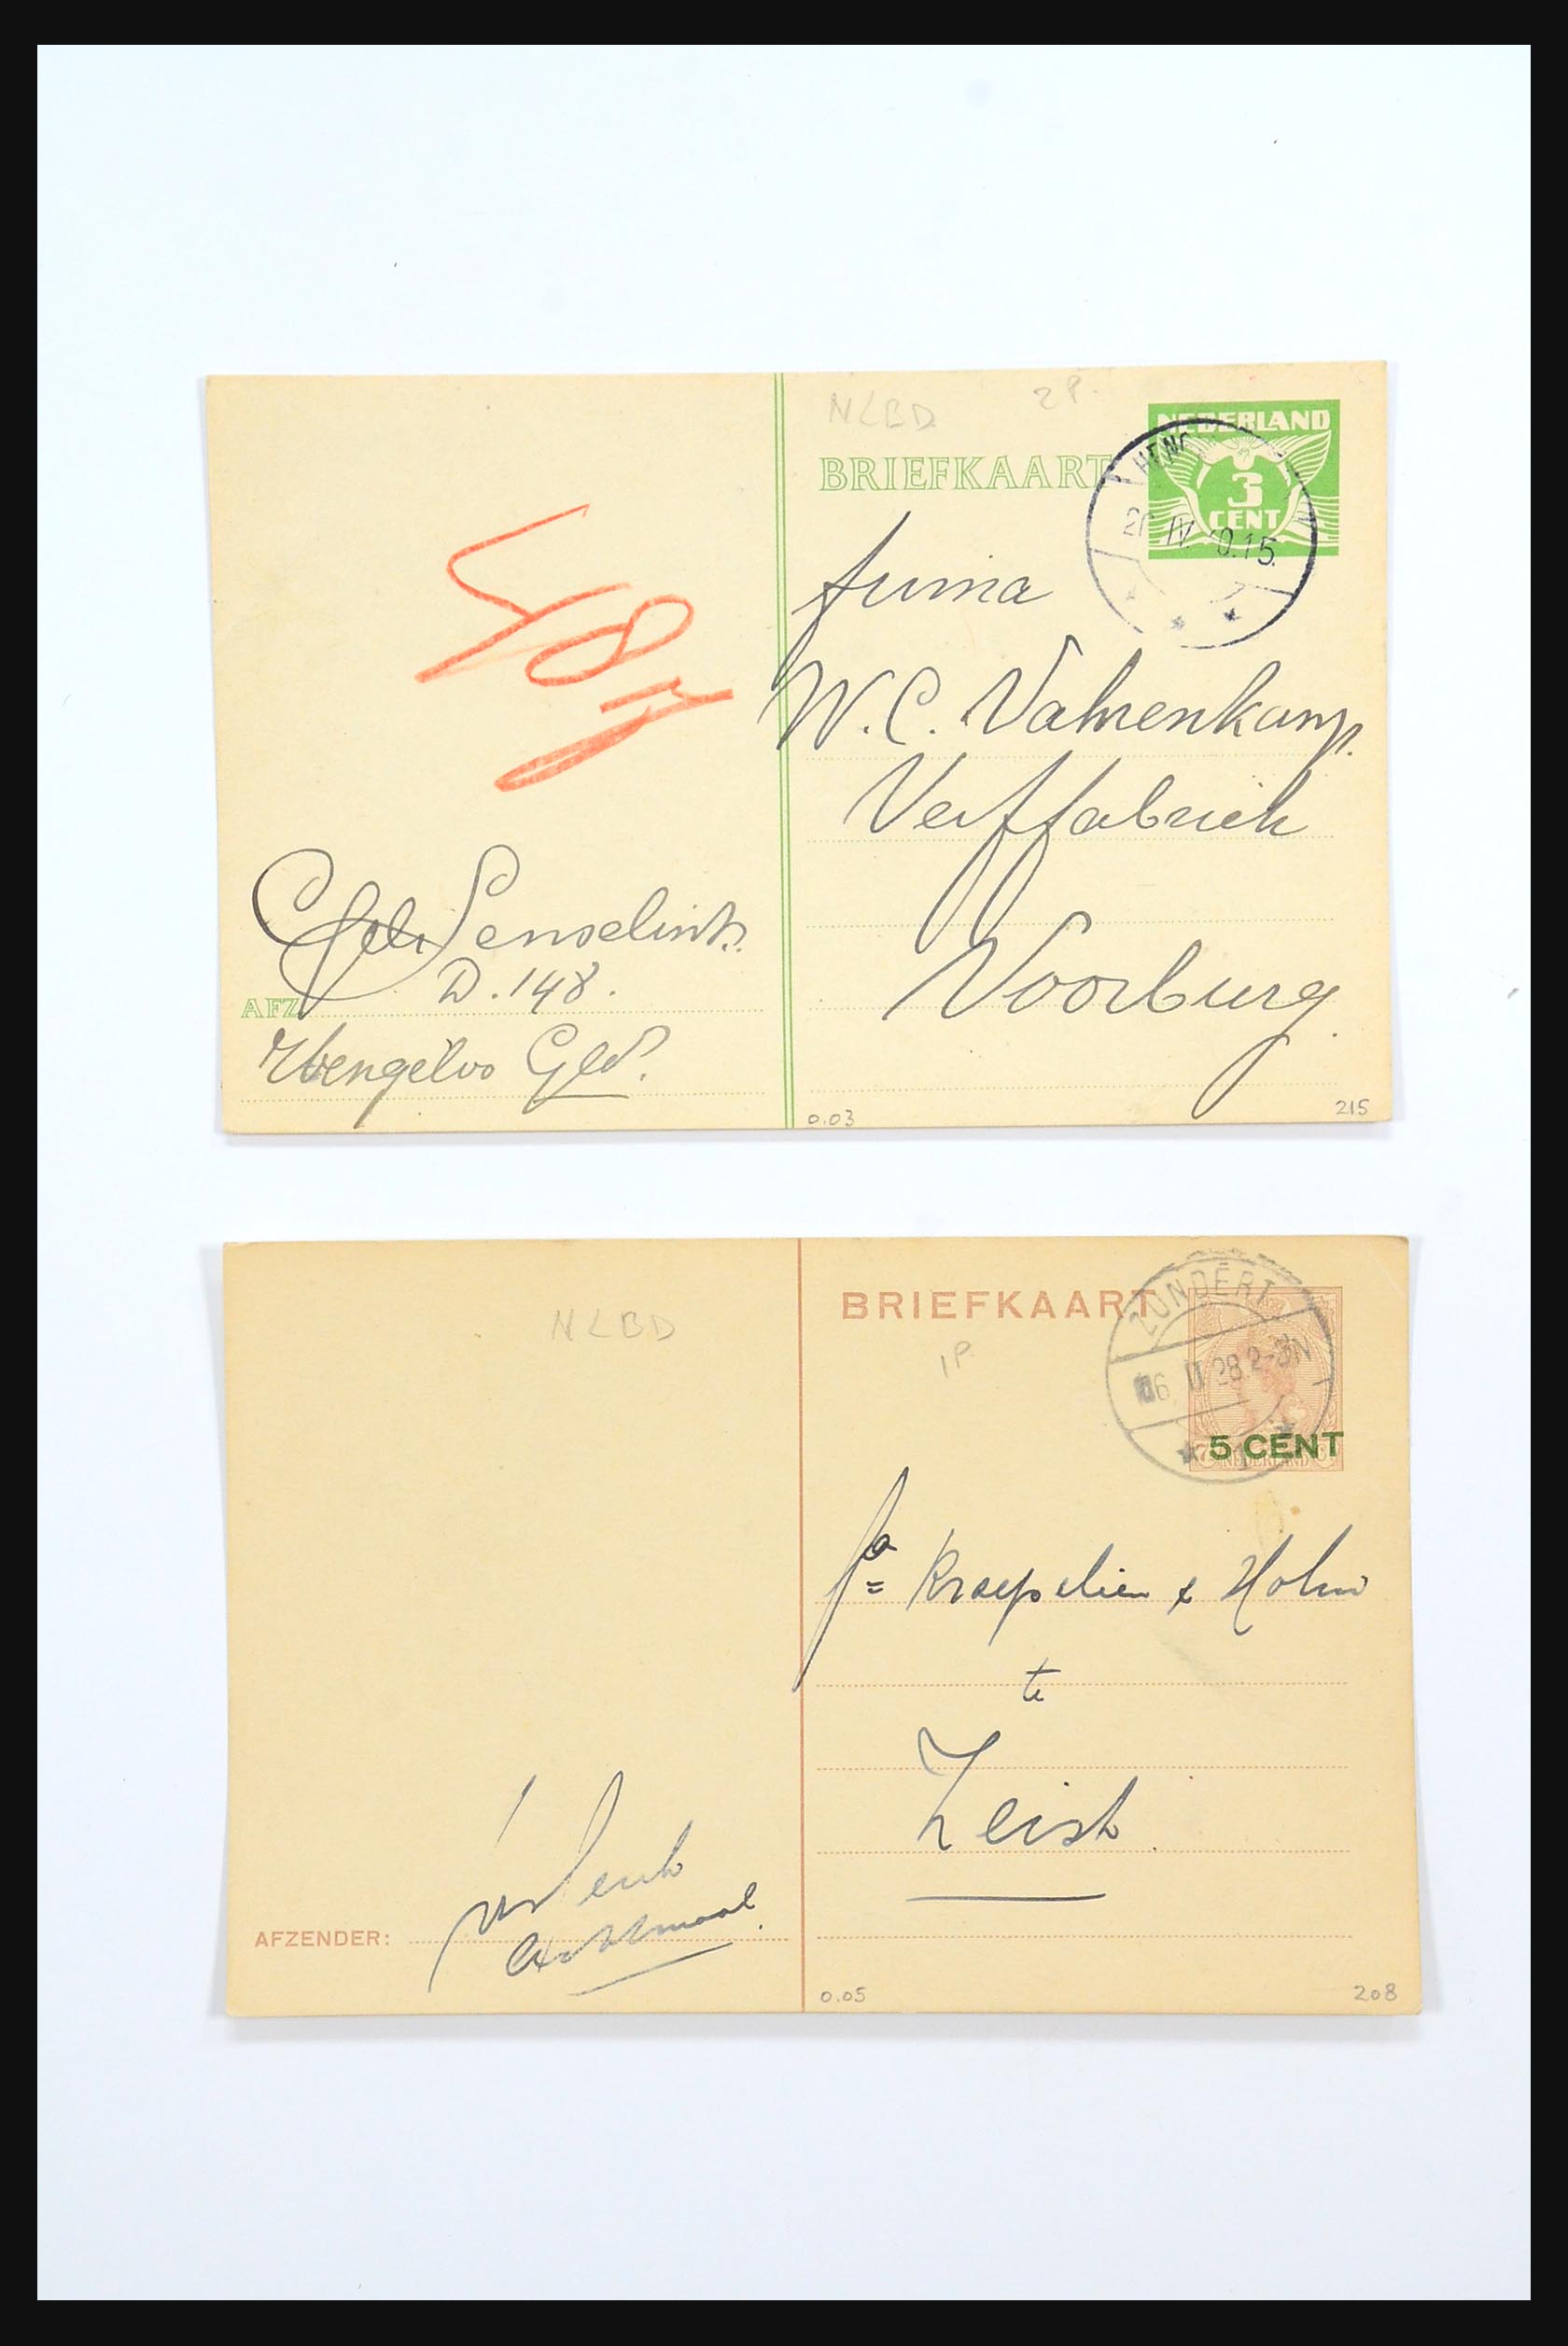 NLBD 2P.
NEDERLAND
3
CENT
BRIEFKAART
HENG
IV. 0.15
firma
W. C. Vahrenkamp.
Verffabriek
Voorburg
Senselink.
D. 148.
AFZ
Hengelo Gld.
0.03
215
NLBD
BRIEFKAART
1P
ZUNDERT
28 2-3N
5 CENT
NEDERLAND
fa Kraepelien & Holm
te
Zeist
AFZENDER:
Achtmaal.
0.05
208